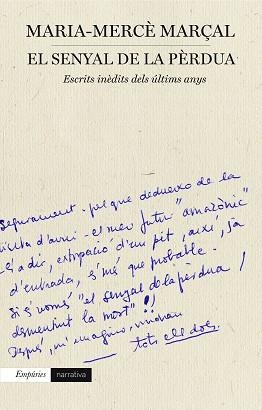 MARIA-MERCÈ MARÇAL
EL SENYAL DE LA PÈRDUA
Escrits inèdits dels últims anys
Segurament - pel que dedueixo de la
visita d'avui - el meu futur "amazònic"
és a dir, extirpació d'un pit, així, ja
d'entrada, s'més que probable.
Si és només "el senyal de la pèrdua /
desmentint la mort"!!
Després, m'imagino, vindran
tots ells dos.
Empúries
narrativa